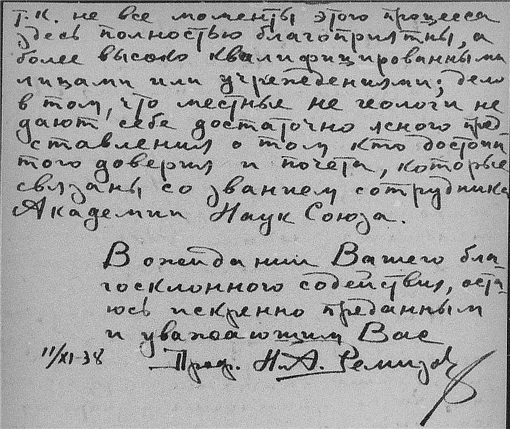 т.к. не все моменты этого процесса
здесь полностью благоприятны, а
более высоко квалифицированными
лицами или учреждениями; дело
в том, что местные не геологи не
дают себе достаточно ясного пред-
ставления о том кто достоин
того доверия и почета, которые
связаны со званием сотрудника
Академии Наук Союза.
В ожидании Вашего бла-
госклонного содействия, оста-
юсь искренно преданным
и уважающим Вас
11/XI-38 Проф. Н.А. Ремизов